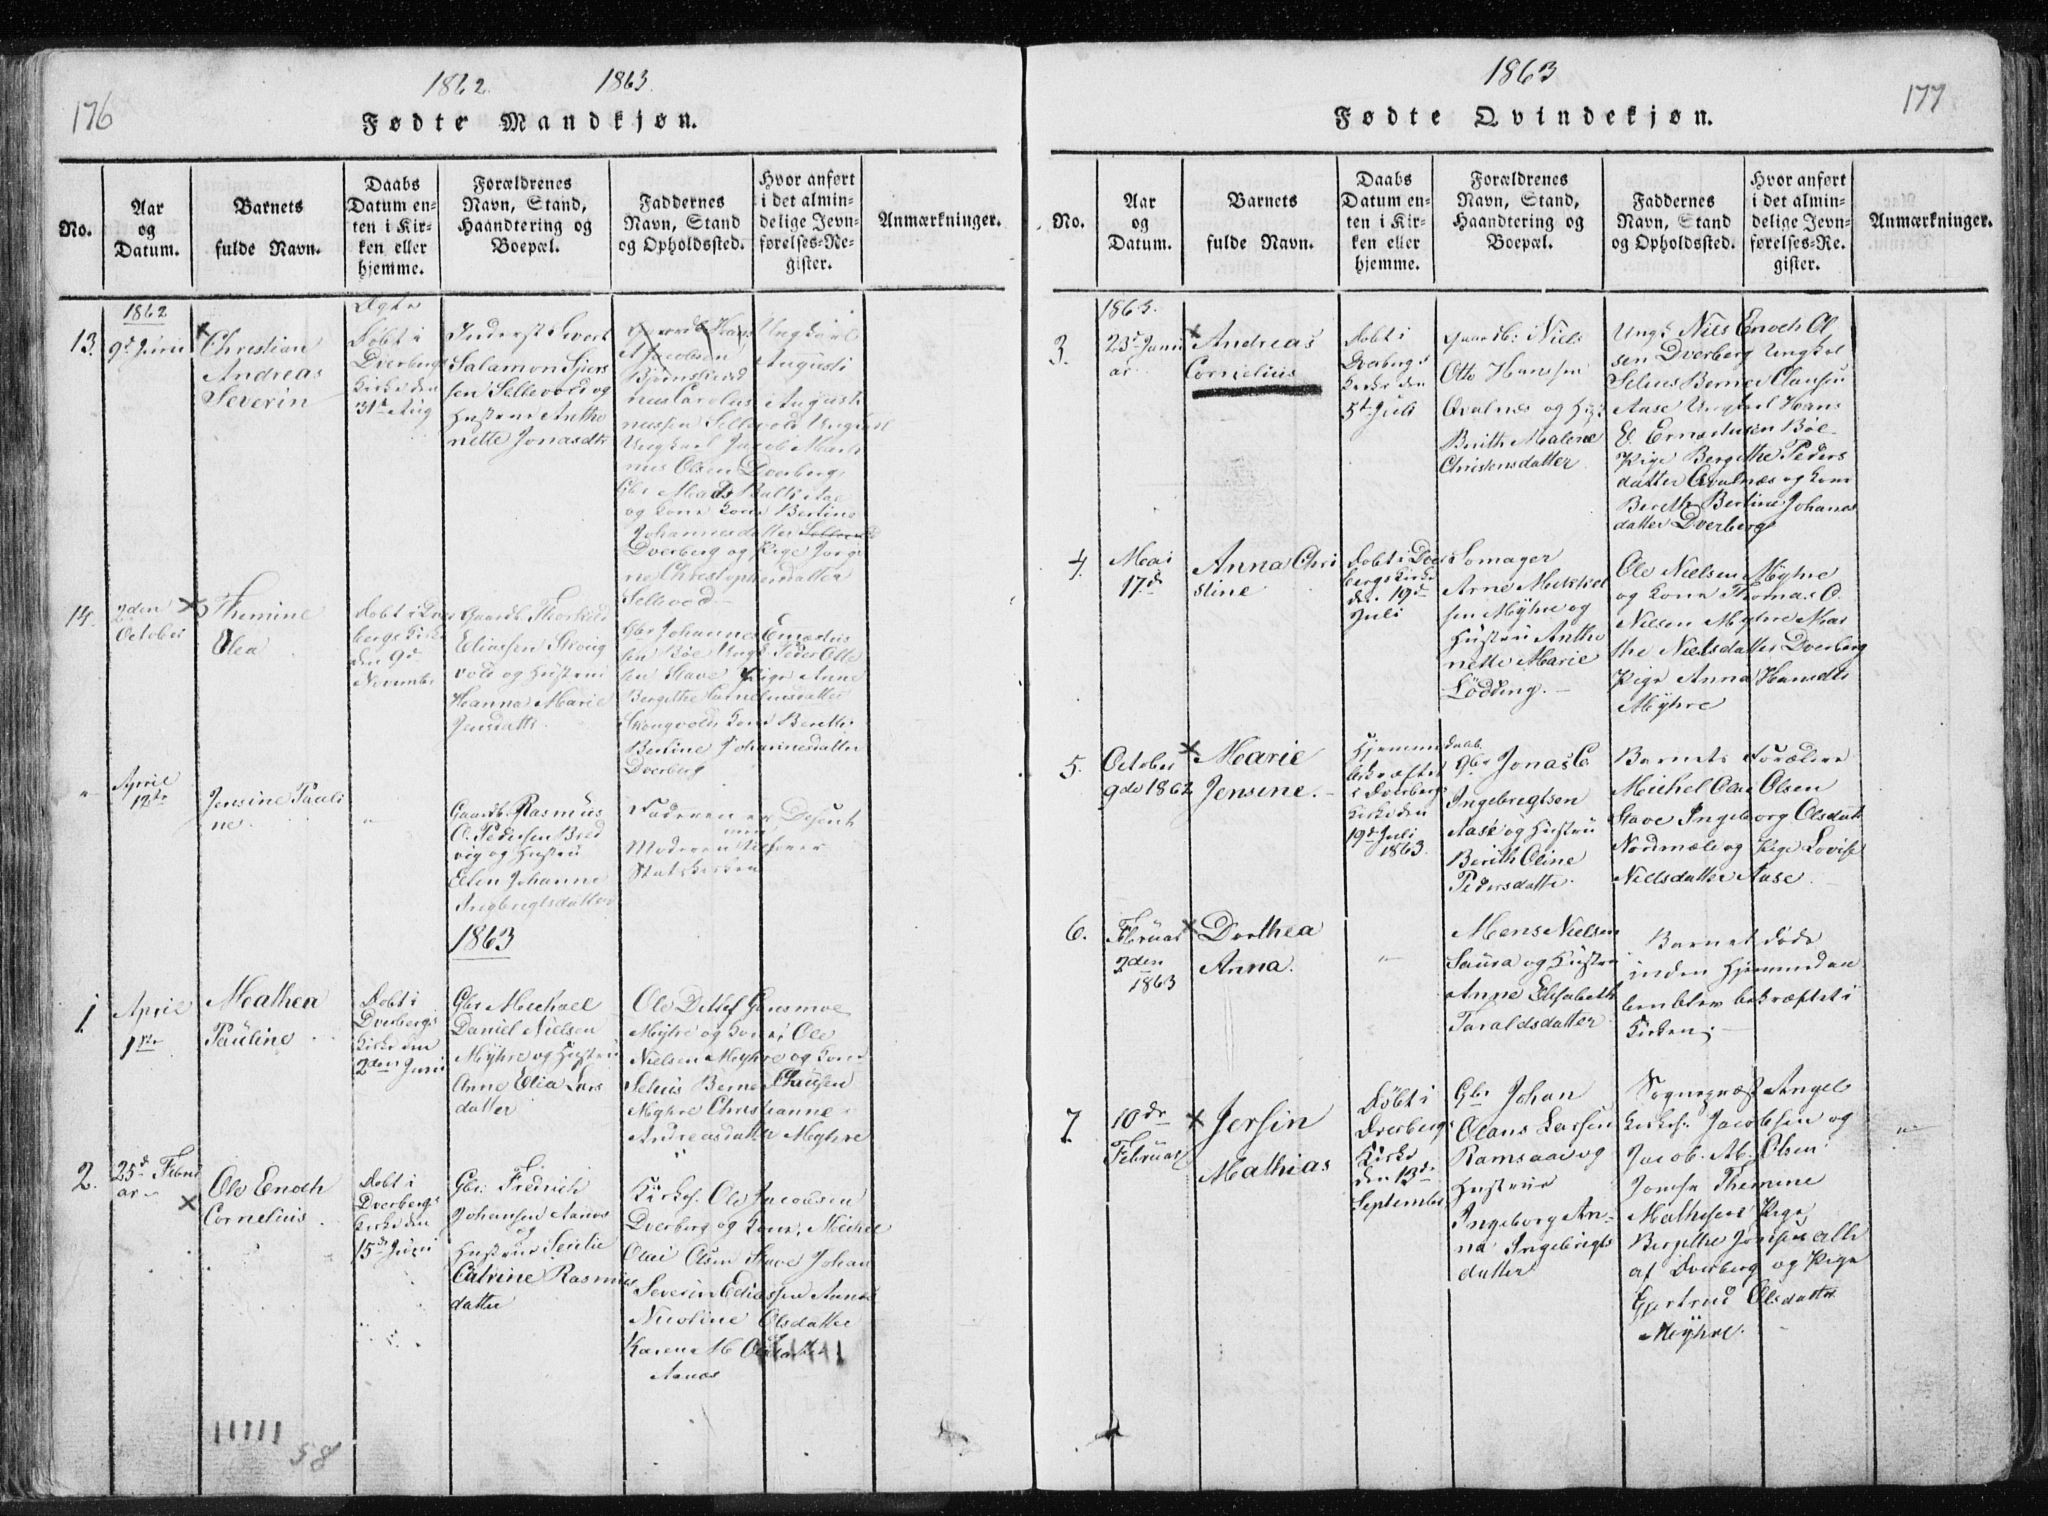 176
1862
1863
Fødte Mandkjøn.
No.
Aar
og
Datum.
Barnets
fulde Navn.
Daabs
Datum en-
ten i Kir-
ken eller
hjemme.
Forældrenes
Navn, Stand,
Haandtering og
Boepæl.
Faddernes
Navn, Stand
og Opholdssted.
Hvor anført
i det almin-
delige Jevn-
førelses-Re-
gister.
Anmærkninger.
1862
13.
9d Juni
Christian
Andreas
Severin
Døbt i
Dverbergs
Kirke den
31te Aug
Salamon
Sellevold og
Hustru Anthe
nette Jonasdtr
Jacobsen
Ungkarl Jacob
Olsen Dverberg
Gbr Mads
og kone Bertine
Johannesdatter
Dverberg og Pige
Christophersdatter
Sellevod
14.
2den
October
Themine
Olea
Døbt i Dver
bergs Kirke
den 9d
November
Gaardb. Thorkild
Eliassen Skoug
vold og Hustru
Hanna Marie
Jensdatter
Gbr Johannes Ernestus
sen Böe Ungk Peder Olle
sen Stave Pige Anne
Bergithe Corneliusdatter
Skougvold kone Berette
Bertine Johannesdatter
Dverberg
April
12te
Jensine Pauli
ne
Gaardb. Rasmus
O. Pedersen Bred
vig og Hustru
Elen Johanne
Ingbrigtsdatter
Faderen er Desent
men
Moderen
Statskirken
1863
1
April
1ste
Mathea
Pauline
Døbt i
Dverbergs
Kirke den
2den Juni
Gbr Michael
Daniel Nielsen
Myhre og Hustru
Anne Elia Lars
datter
Ole Detlef
Myhre og kone, Ole
Nielsen Myhre og kone
Selius Berne Clausen
Myhre Christianne
Andreasdatter Myhre
2.
25d Febru
ar
Ole Enoch
Cornelius
Døbt i
Dverbergs
Kirke den
15de Juni
Gbr: Fredrich
Johansen Aanes
og
Hustrue Sicilie
Catrine Rasmus
datter
Kirkes. Ole Jacobsen
Dverberg og kone, Michel
Olai Olsen Stave Johan
Severin Eliassen Aanes
Nicoline Olsdatter
Karen M Olsdatter
Aanes
58
1863
177
Fødte Qvindekjøn.
No.
Aar
og
Datum.
Barnets
fulde Navn.
Daabs
Datum en-
ten i Kir-
ken eller
hjemme.
Forældrenes
Navn, Stand,
Haandtering og
Boepæl.
Faddernes
Navn, Stand
og Opholdssted.
Hvor anført
i det almin-
delige Jevn-
førelses-Re-
gister.
Anmærkninger.
1863.
3.
23d Janu
ar
Andreas
Cornelius
Døbt i
Dverbergs
Kirke den
5te Juli
Gaardb: Niels
Otto Hanssen
Qvalnes og H:
Brith Malene
Christensdatter
Ungk Nils Enoch Ol
sen Dverberg Ungkal
Selius Berne Clausen
Aase Ungkarl Hans
E. Ernestusen Böe
Pige Bergithe Peders
datter Qvalnæs og kone
Bereth Bertine Johanes
datter Dverberg
4.
Mai
17.d
Anna Chri
stine
Døbt i Dver
bergs Kirke
den 19d
Juli
Somager
Arne Mikkel
sen Myhre og
Hustru Anthe
nette Marie
Lödding.
Ole Nielsen Myhre
og kone Thomas O.
Nielsen Myhre Mar
the Nielsdatter Dverberg
Pige Anna Hansdtr
Myhre
5.
October
9de 1862
Marie
Jensine.
Hjemmedaab
bekræftet
i Dverbergs
Kirke den
19d Juli
1863.
Gbr Jonas C
Ingebregtsen
Aase og Hustru
Berith Oline
Pedersdatter.
Barnets Forældre
Michel Olai Olsen
Stave Ingeborg Olsdatt
Nordmæle og Pige Lovise
Nielsdatter Aase.
6.
Februar
3den
1863
Dorthea
Anna.
Mons Nielsen
Saura og Hustru
Anne Elisabeth
Taraldsdatter
Barnet døde
inden Hjemmedaa
ben blev bekræftet i
Kirken.
7.
10de
Februar
Jersin
Mathias
Døbt i
Dverbergs
Kirke
den 13de
September
Gbr Johan
Olans Larsen
Ramsaa og
Hustrue
Ingeborg An-
na Ingebrigts
datter
Sognepræst Angel
Kirkes. Jacobsen og
Jacob. M. Olsen
Jomfr Themine
Mathisen Pige
Bergithe alle
af Dverberg og Pige
Gjertrud Olsdatter
Myhre.